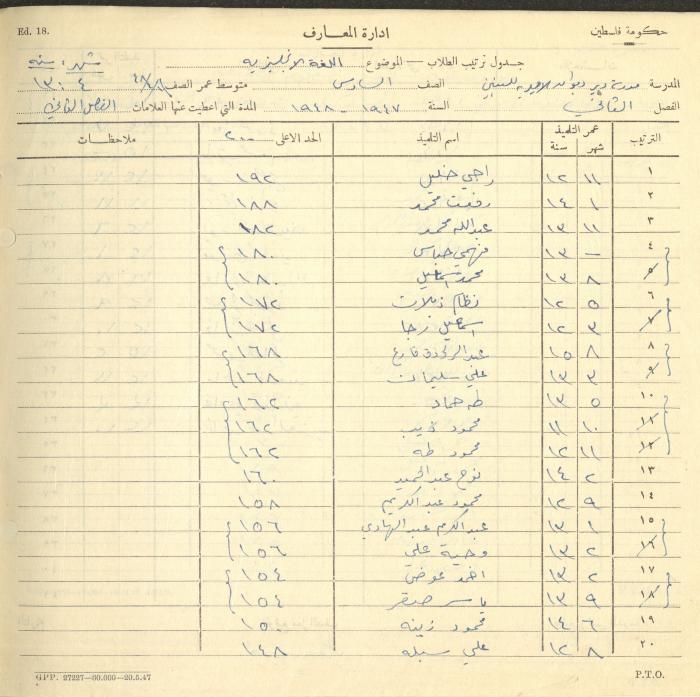 Ed. 18.
حكومة فلسطين
ادارة المعارف
جدول ترتيب الطلاب — الموضوع اللغة الانجليزية
المدرسة مدرسة دير ديوان الاميرية للبنين الصف السادس متوسط عمر الصف شهر سنة ٤ ١٣
الفصل الثاني السنة ١٩٤٧ - ١٩٤٨ المدة التي اعطيت عنها العلامات الفصل الثاني
الترتيب عمر التلميذ شهر سنة اسم التلميذ الحد الاعلى ٢٠٠ ملاحظات
١ ١١ ١٢ راجي خليل ١٩٢
٢ ١ ١٤ رفعت محمد ١٨٨
٣ ١١ ١٣ عبدالله محمد ١٨٢
٤ — ١٣ فهمي عباس ١٨٠
٥ ٨ ١٣ محمد اسماعيل ١٨٠
٦ ٥ ١٢ نظام ١٧٢
٧ ٣ ١٢ اسماعيل ١٧٢
٨ ٨ ١٥ عبد الرازق فارع ١٦٨
٩ ٣ ١٣ علي سليمان ١٦٨
١٠ ٥ ١٣ طه حماد ١٦٢
١١ ١٠ ١١ محمود ذيب ١٦٢
١٢ ١١ ١٢ محمود طه ١٦٢
١٣ ٢ ١٤ نوح عبد الحميد ١٦٠
١٤ ٩ ١٢ محمود عبد الكريم ١٥٨
١٥ ١ ١٣ عبد الكريم عبد الهادي ١٥٦
١٦ ٢ ١٣ وحية علي ١٥٦
١٧ ٢ ١٣ احمد عوض ١٥٤
١٨ ٩ ١٣ ياسر صقر ١٥٤
١٩ ٦ ١٤ محمود زينه ١٥٠
٢٠ ٨ ١٢ علي سبله ١٤٨
GPP. 27227—50.000—20.5.47
P.T.O.